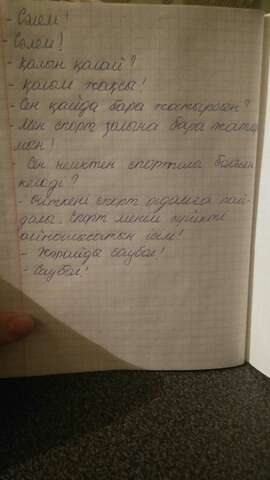 - Сәлем!
- Сәлем!
- Қалың қалай?
- Қалым жақсы!
- Сен қайда бара жатырсың?
- Мен спорт залына бара жатыр
мын!
- Сен неліктен спортпила болғың
келеді?
- Өйткені спорт адамға пай-
далы. Спорт менің сүйікті
айналысатын ісім!
- Жарайды саубол!
- Саубол!